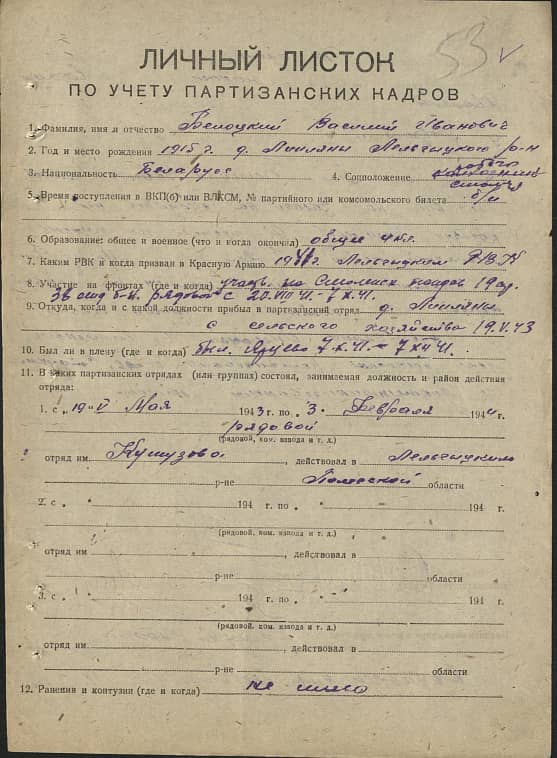 53 v
ЛИЧНЫЙ ЛИСТОК
ПО УЧЕТУ ПАРТИЗАНСКИХ КАДРОВ
1. Фамилия, имя и отчество Белоцкий Василий Иванович
2. Год и место рождения 1915 г. д. Липляны Лельчицкого р-н
3. Национальность Беларус 4. Соцположение
5. Время поступления в ВКП(б) или ВЛКСМ, № партийного или комсомольского билета б/п
6. Образование: общее и военное (что и когда окончил) общее 4 кл.
7. Каким РВК и когда призван в Красную Армию 1941 г. Лельчицким РВК
8. Участие на фронтах (где и когда) на Смоленск 19 ар.
38 рядовой с 20.VII 41 - 7 X.41.
9. Откуда, когда и с какой должности прибыл в партизанский отряд д. Липляны
с сельского хозяйства 19.V.43
10. Был ли в плену (где и когда) был. Ярцево 7.X.41. - 7 XII 41.
11. В каких партизанских отрядах (или группах) состоял, занимаемая должность и район действия
отряда:
1. с „ 19-V Мая 1943 г. по „ 3 " Февраля 1944 г.
рядовой
(рядовой, ком. взвода и т. д.)
отряд им Кутузова , действовал в Лельчицким
р-не Полесской области
2. с „ " 194 г. по „ " 194 г.
(рядовой, ком. взвода и т. д.)
отряд им , действовал в
р-не области
3. с „ " 194 г. по „ " 194 г.
(рядовой, ком. взвода и т. д.)
отряд им , действовал в
р-не области
12. Ранения и контузии (где и когда) не имею